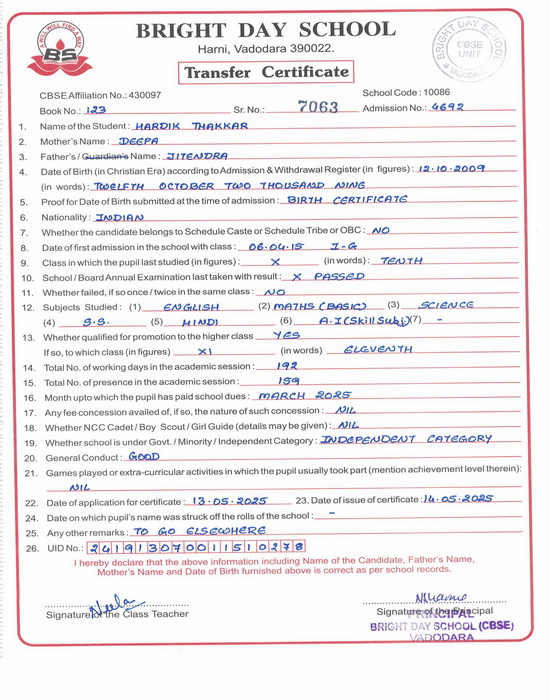 A WILL WILL FIND A WAY
BS
BRIGHT DAY SCHOOL
Harni, Vadodara 390022.
BRIGHT DAY SCHOOL
CBSE
UNIT
VADODARA
Transfer Certificate
CBSE Affiliation No.: 430097 School Code : 10086
Book No.: 123 Sr. No.: 7063 Admission No.: 4692
1. Name of the Student : HARDIK THAKKAR
2. Mother's Name : DEEPA
3. Father's / Guardian's Name : JITENDRA
4. Date of Birth (in Christian Era) according to Admission & Withdrawal Register (in figures) : 12.10.2009
(in words) : TWELFTH OCTOBER TWO THOUSAND NINE
5. Proof for Date of Birth submitted at the time of admission : BIRTH CERTIFICATE
6. Nationality : INDIAN
7. Whether the candidate belongs to Schedule Caste or Schedule Tribe or OBC : NO
8. Date of first admission in the school with class : 06.04.15 I-G
9. Class in which the pupil last studied (in figures) : X (in words) : TENTH
10. School / Board Annual Examination last taken with result : X PASSED
11. Whether failed, if so once / twice in the same class : NO
12. Subjects Studied : (1) ENGLISH (2) MATHS (BASIC) (3) SCIENCE
(4) S.S. (5) HINDI (6) A.I (Skill Subj) (7) -
13. Whether qualified for promotion to the higher class YES
If so, to which class (in figures) XI (in words) ELEVENTH
14. Total No. of working days in the academic session : 192
15. Total No. of presence in the academic session : 159
16. Month upto which the pupil has paid school dues : MARCH 2025
17. Any fee concession availed of, if so, the nature of such concession : NIL
18. Whether NCC Cadet / Boy Scout / Girl Guide (details may be given) : NIL
19. Whether school is under Govt. / Minority / Independent Category : INDEPENDENT CATEGORY
20. General Conduct : GOOD
21. Games played or extra-curricular activities in which the pupil usually took part (mention achievement level therein):
NIL
22. Date of application for certificate : 13.05.2025 23. Date of issue of certificate : 14.05.2025
24. Date on which pupil's name was struck off the rolls of the school : -
25. Any other remarks : TO GO ELSEWHERE
26. UID No.: 241913070011510278
I hereby declare that the above information including Name of the Candidate, Father's Name,
Mother's Name and Date of Birth furnished above is correct as per school records.
Neela
Signature of the Class Teacher Signature of the Principal
PRINCIPAL
BRIGHT DAY SCHOOL (CBSE)
VADODARA